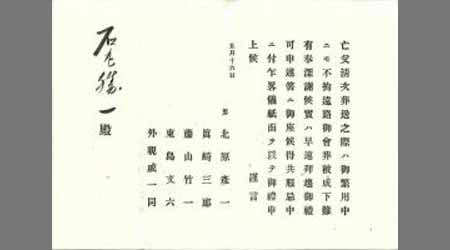 亡父淸次葬送之際ハ御繁用中
ニモ不拘遠路御會葬被成下難
有奉深謝候實ハ早速拜趨御禮
可申述筈ニ御座候得共服忌中
ニ付乍畧儀紙面ヲ以テ御禮申
上候 謹言
五月十六日
男 北原彦一
眞崎三郎
藤山竹一
東島文六
外親戚一同
石丸勝一殿